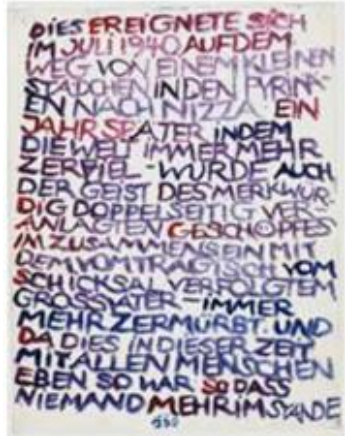 DIES EREIGNETE SICH
IM JULI 1940 AUF DEM
WEG VON EINEM KLEINEN
STÄDCHEN IN DEN PYRIN-
EN NACH NIZZA EIN
JAHR SPÄTER INDEM
DIE WELT IMMER MEHR
ZERFIEL - WURDE AUCH
DER GEIST DES MERKWÜR-
DIG DOPPELSEITIG VER-
ANLAGTEN GESCHÖPFES
IM ZUSAMMENSEIN MIT
DEM VOM TRAGISCH VOM
SCHICKSAL VERFOLGTEM
GROSSVATER - IMMER
MEHR ZERMÜRBT. UND
DA DIES IN DIESER ZEIT
MIT ALLEN MENSCHEN
EBEN SO WAR SO DASS
NIEMAND MEHR IM STANDE